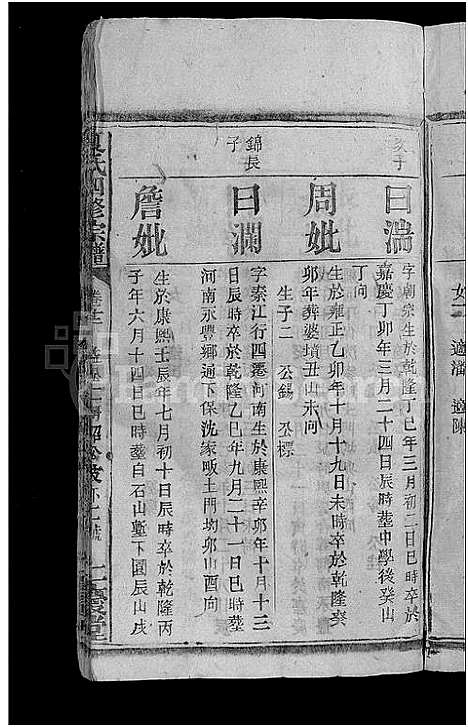 女二 適潘 適陳
亥子
曰湍 字朝宗生於乾隆丁巳年三月初二日巳時卒於
嘉慶丁卯年三月二十四日辰時塟中學後癸山
丁向
周妣 生於雍正乙卯年十月十九日未時卒於乾隆癸
卯年葬婆墳丑山未向
生子二 公錫 公標
錦長子
曰瀾 字泰江行四遷河南生於康熙辛卯年十月十三
日辰時卒於乾隆乙巳年九月二十一日巳時塟
河南永豐鄉通下保沈家畈土門均卯山酉向
詹妣 生於康熙壬辰年七月初十日辰時卒於乾隆丙
子年六月十四日巳時塟自石山塹下園辰山戌
氏四修宗譜